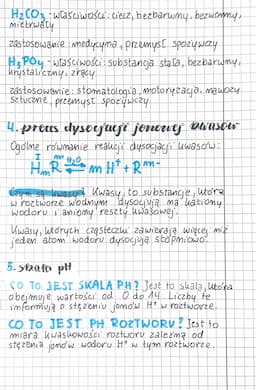 H₂CO₃ - właściwości: ciecz, bezbarwny, bezwonny,
nietrwały
zastosowanie: medycyna, przemysł spożywczy
H₃PO₄ - właściwości: substancja stała, bezbarwny,
krystaliczny, żrący
zastosowanie: stomatologia, motoryzacja, nawozy
sztuczne, przemysł spożywczy
4. proces dysocjacji jonowej kwasów
Ogólne równanie reakcji dysocjacji kwasów:
I m
HₘR ⇌ m H⁺ + Rᵐ⁻
H₂O
Kwasy to substancje, które
w roztworze wodnym dysocjują na kationy
wodoru i aniony reszty kwasowej.
Kwasy, których cząsteczki zawierają więcej niż
jeden atom wodoru dysocjują stopniowo.
5. skala pH
CO TO JEST SKALA PH? Jest to skala, która
obejmuje wartości od 0 do 14. Liczby te
informują o stężeniu jonów H⁺ w roztworze.
CO TO JEST PH ROZTWORU? Jest to
miara kwasowości roztworu zależna od
stężenia jonów wodoru H⁺ w tym roztworze.